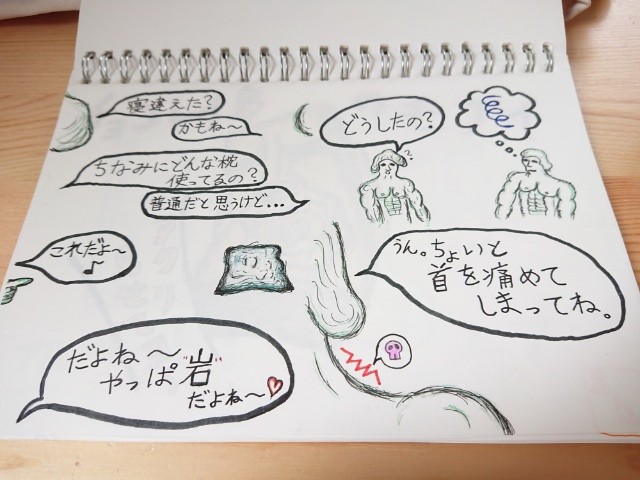 どうしたの?
うん。ちょいと
首を痛めて
しまってね。
寝違えた?
かもね〜
ちなみにどんな枕
使ってるの?
普通だと思うけど...
これだよ〜♪
だよね〜
やっぱ"岩"
だよね〜♡